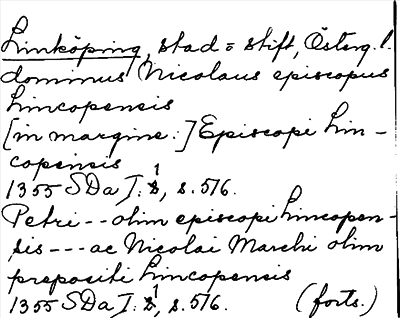 Linköping, stad o stift, Österg. l.
dominus Nicolaus episcopus
Lincopensis
[in margine:] Episcopi Lin-
copensis
1355 SDa I: 1, s. 576.
Petri -- olim episcopi Lincopen-
sis --- ac Nicolai Marchi olim
prepositi Lincopensis
1355 SDa I: 1, s. 576. (forts.)